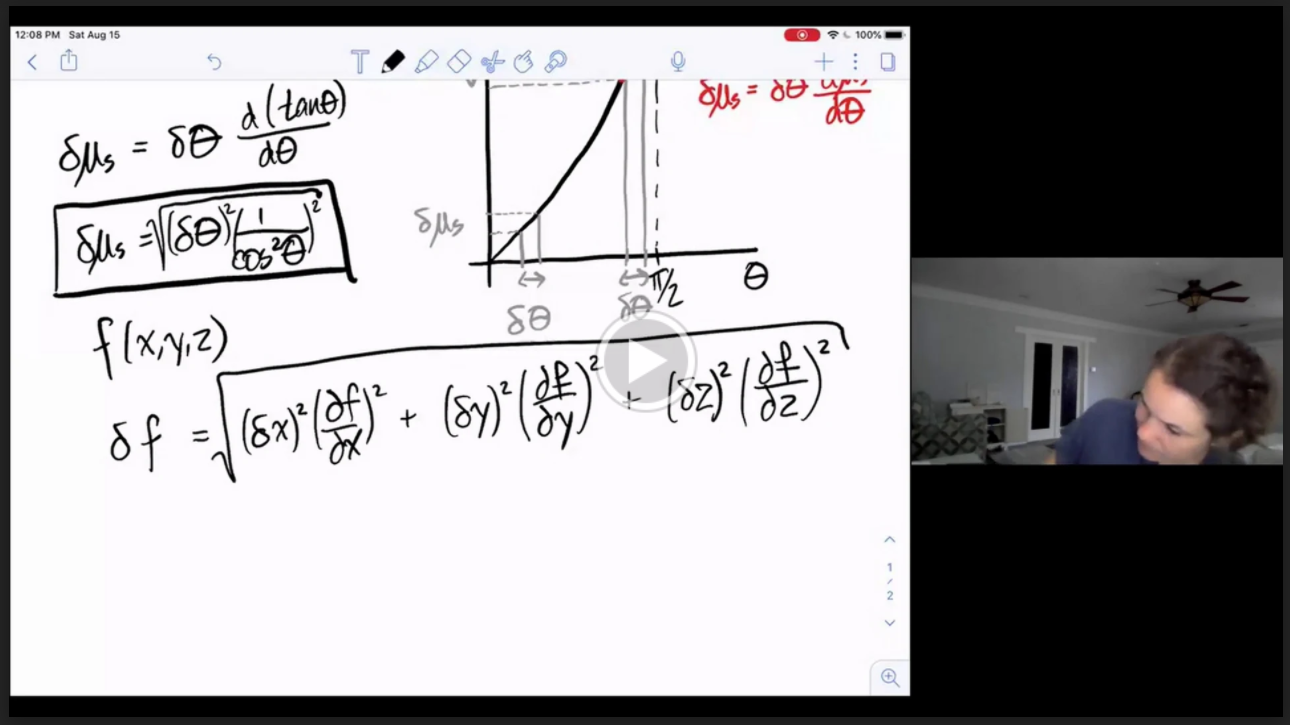 12:08 PM Sat Aug 15
100%
T
δμs = δθ d(tanθ)/dθ
δμs = δθ dμs/dθ
δμs = √((δθ)²(1/cos²θ)²)
δμs
δθ
δθ
π/2
θ
f(x,y,z)
δf = √((δx)²(∂f/∂x)² + (δy)²(∂f/∂y)² + (δz)²(∂f/∂z)²)
1
/
2